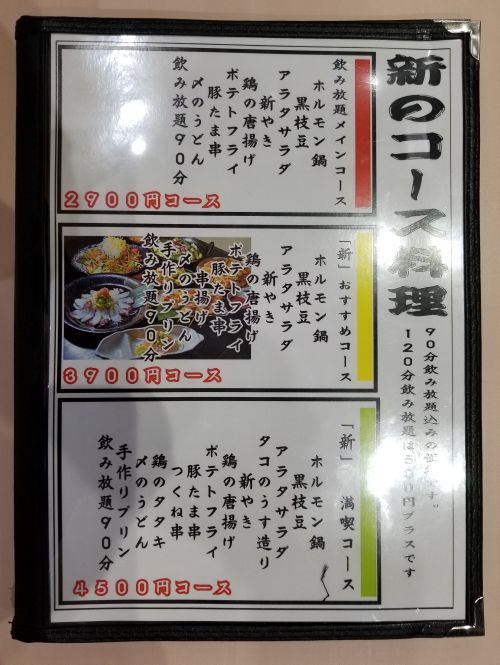 新のコース料理
90分飲み放題込みの値段です。
120分飲み放題は500円プラスです
飲み放題メインコース
ホルモン鍋
黒枝豆
アラタサラダ
新やき
鶏の唐揚げ
ポテトフライ
豚たま串
〆のうどん
飲み放題90分
2900円コース
「新」おすすめコース
ホルモン鍋
黒枝豆
アラタサラダ
新やき
鶏の唐揚げ
ポテトフライ
豚たま串
串揚げ
〆のうどん
手作りプリン
飲み放題90分
3900円コース
「新」満喫コース
ホルモン鍋
黒枝豆
アラタサラダ
タコのうす造り
新やき
鶏の唐揚げ
ポテトフライ
豚たま串
つくね串
鶏のタタキ
〆のうどん
手作りプリン
飲み放題90分
4500円コース